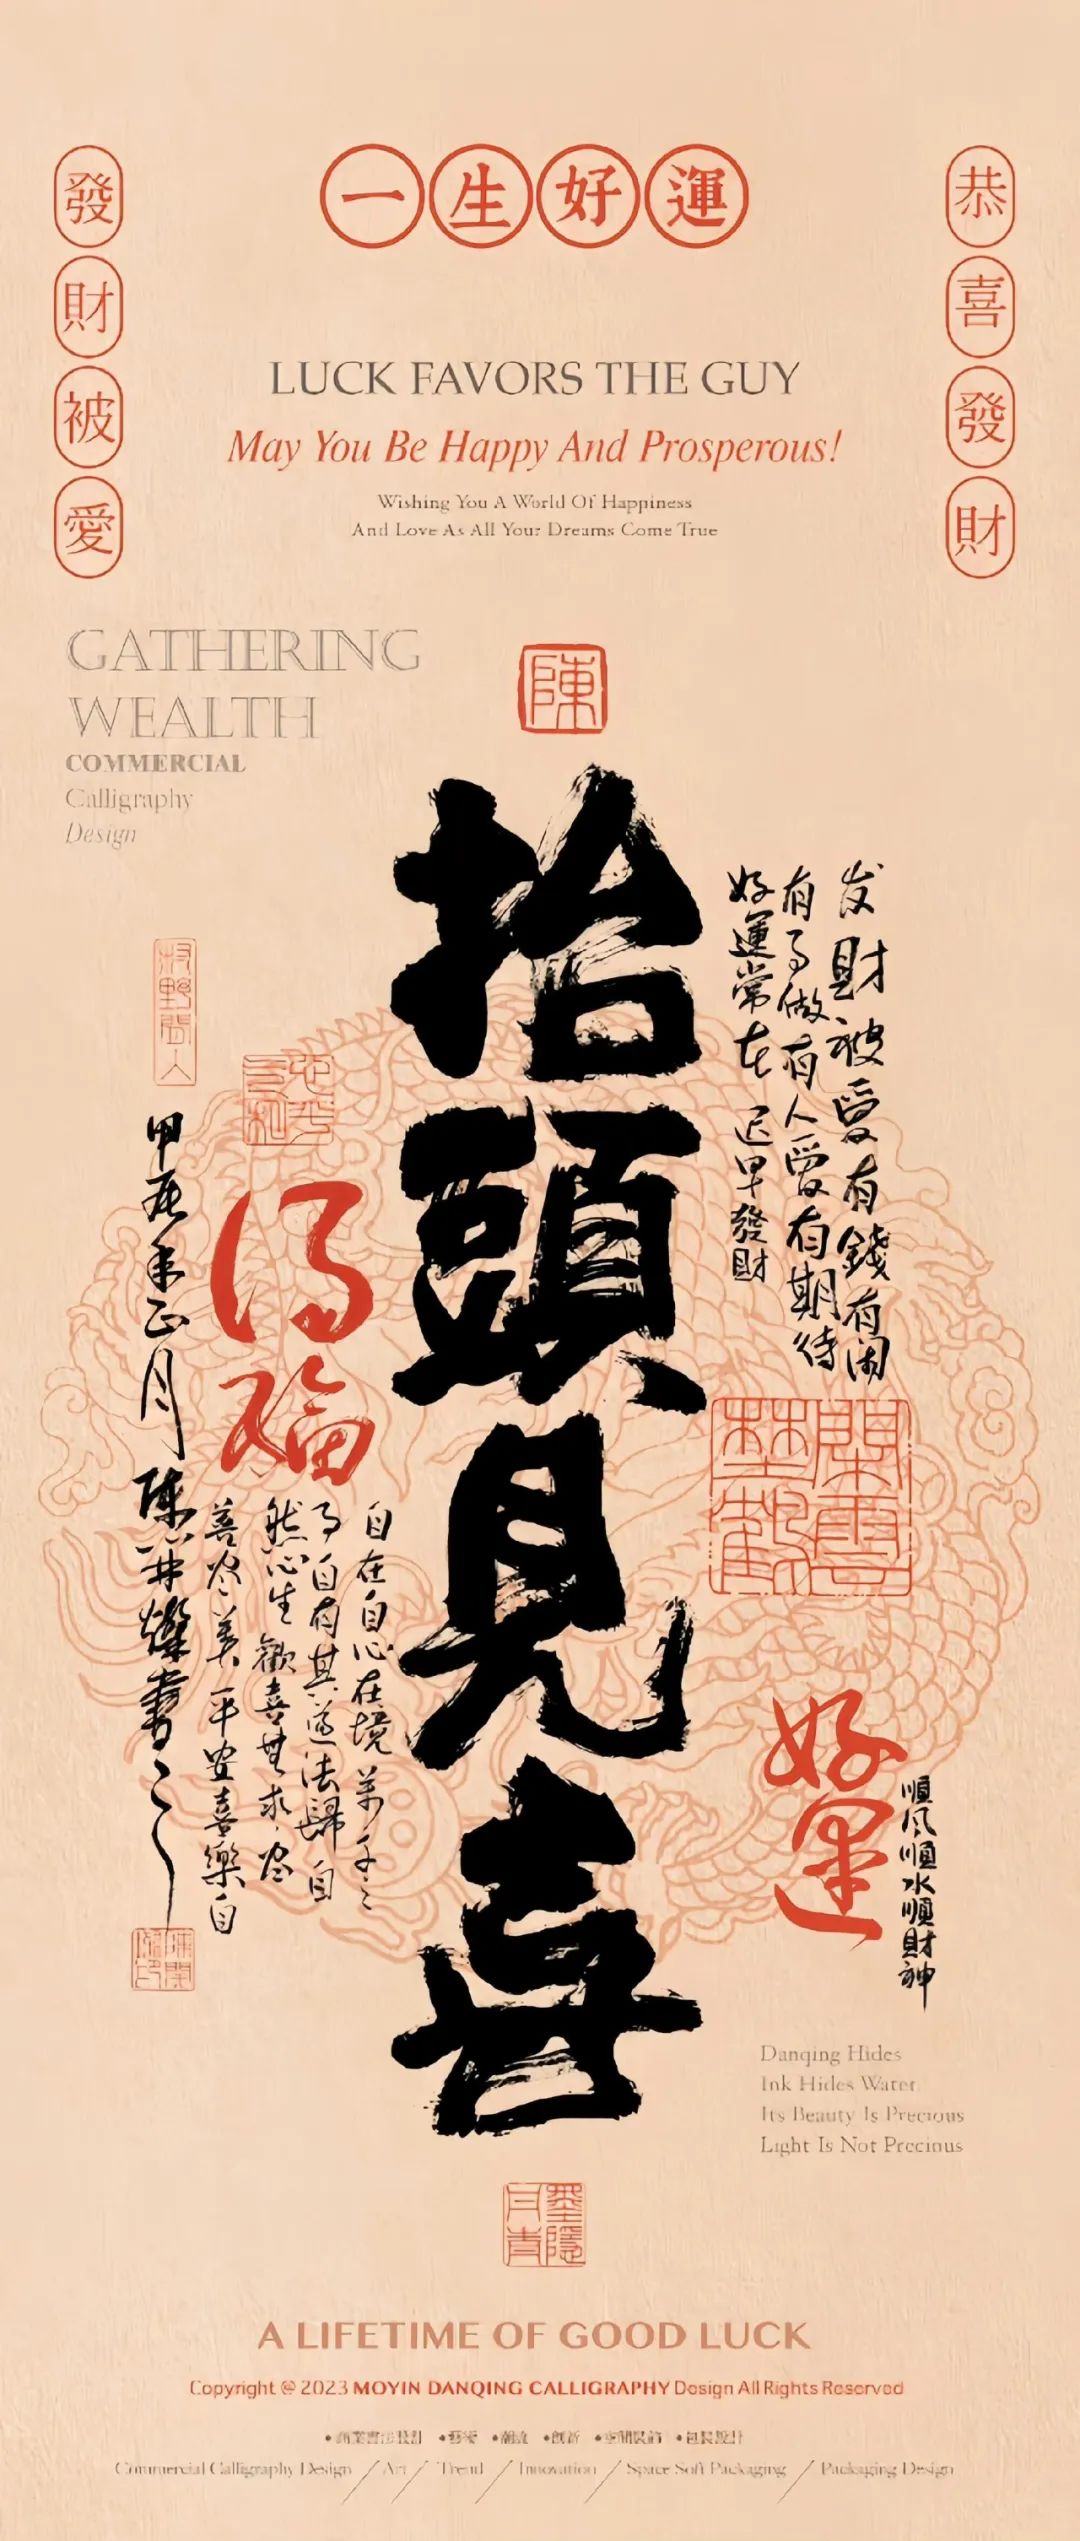 一生好運
恭喜發財
發財被愛
LUCK FAVORS THE GUY
May You Be Happy And Prosperous!
Wishing You A World Of Happiness
And Love As All Your Dreams Come True
GATHERING
WEALTH
COMMERCIAL
Calligraphy
Design
陳
抬頭見喜
发財被愛有錢有闲
有事做有人愛有期待
好運常在 迟早發財
好運
順风順水順財神
得福
自在自心在境 万事
自有其道法歸自
然心生歡喜無求尽
善尽美平安喜樂自
甲辰年正月
Danqing Hides
Ink Hides Water
Its Beauty Is Precious
Light Is Not Precious
墨隱丹青
A LIFETIME OF GOOD LUCK
Copyright @ 2023 MOYIN DANQING CALLIGRAPHY Design All Rights Reserved
•商業書法設計 •藝術 •潮流 •創新 •空間裝飾 •包裝設計
Commercial Calligraphy Design / Art / Trend / Innovation / Space Soft Packaging / Packaging Design